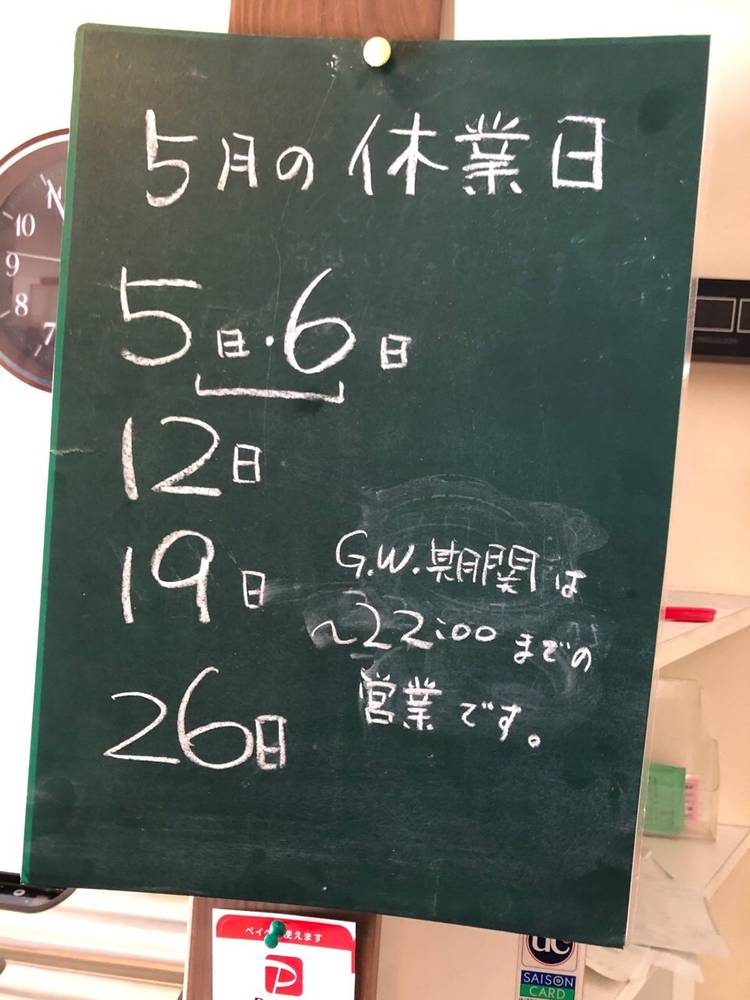 5月の休業日
5日・6日
12日
19日
26日
G.W.期間は
~22:00までの
営業です。
10
9
8
7
使えます
UC
SAISON
CARD